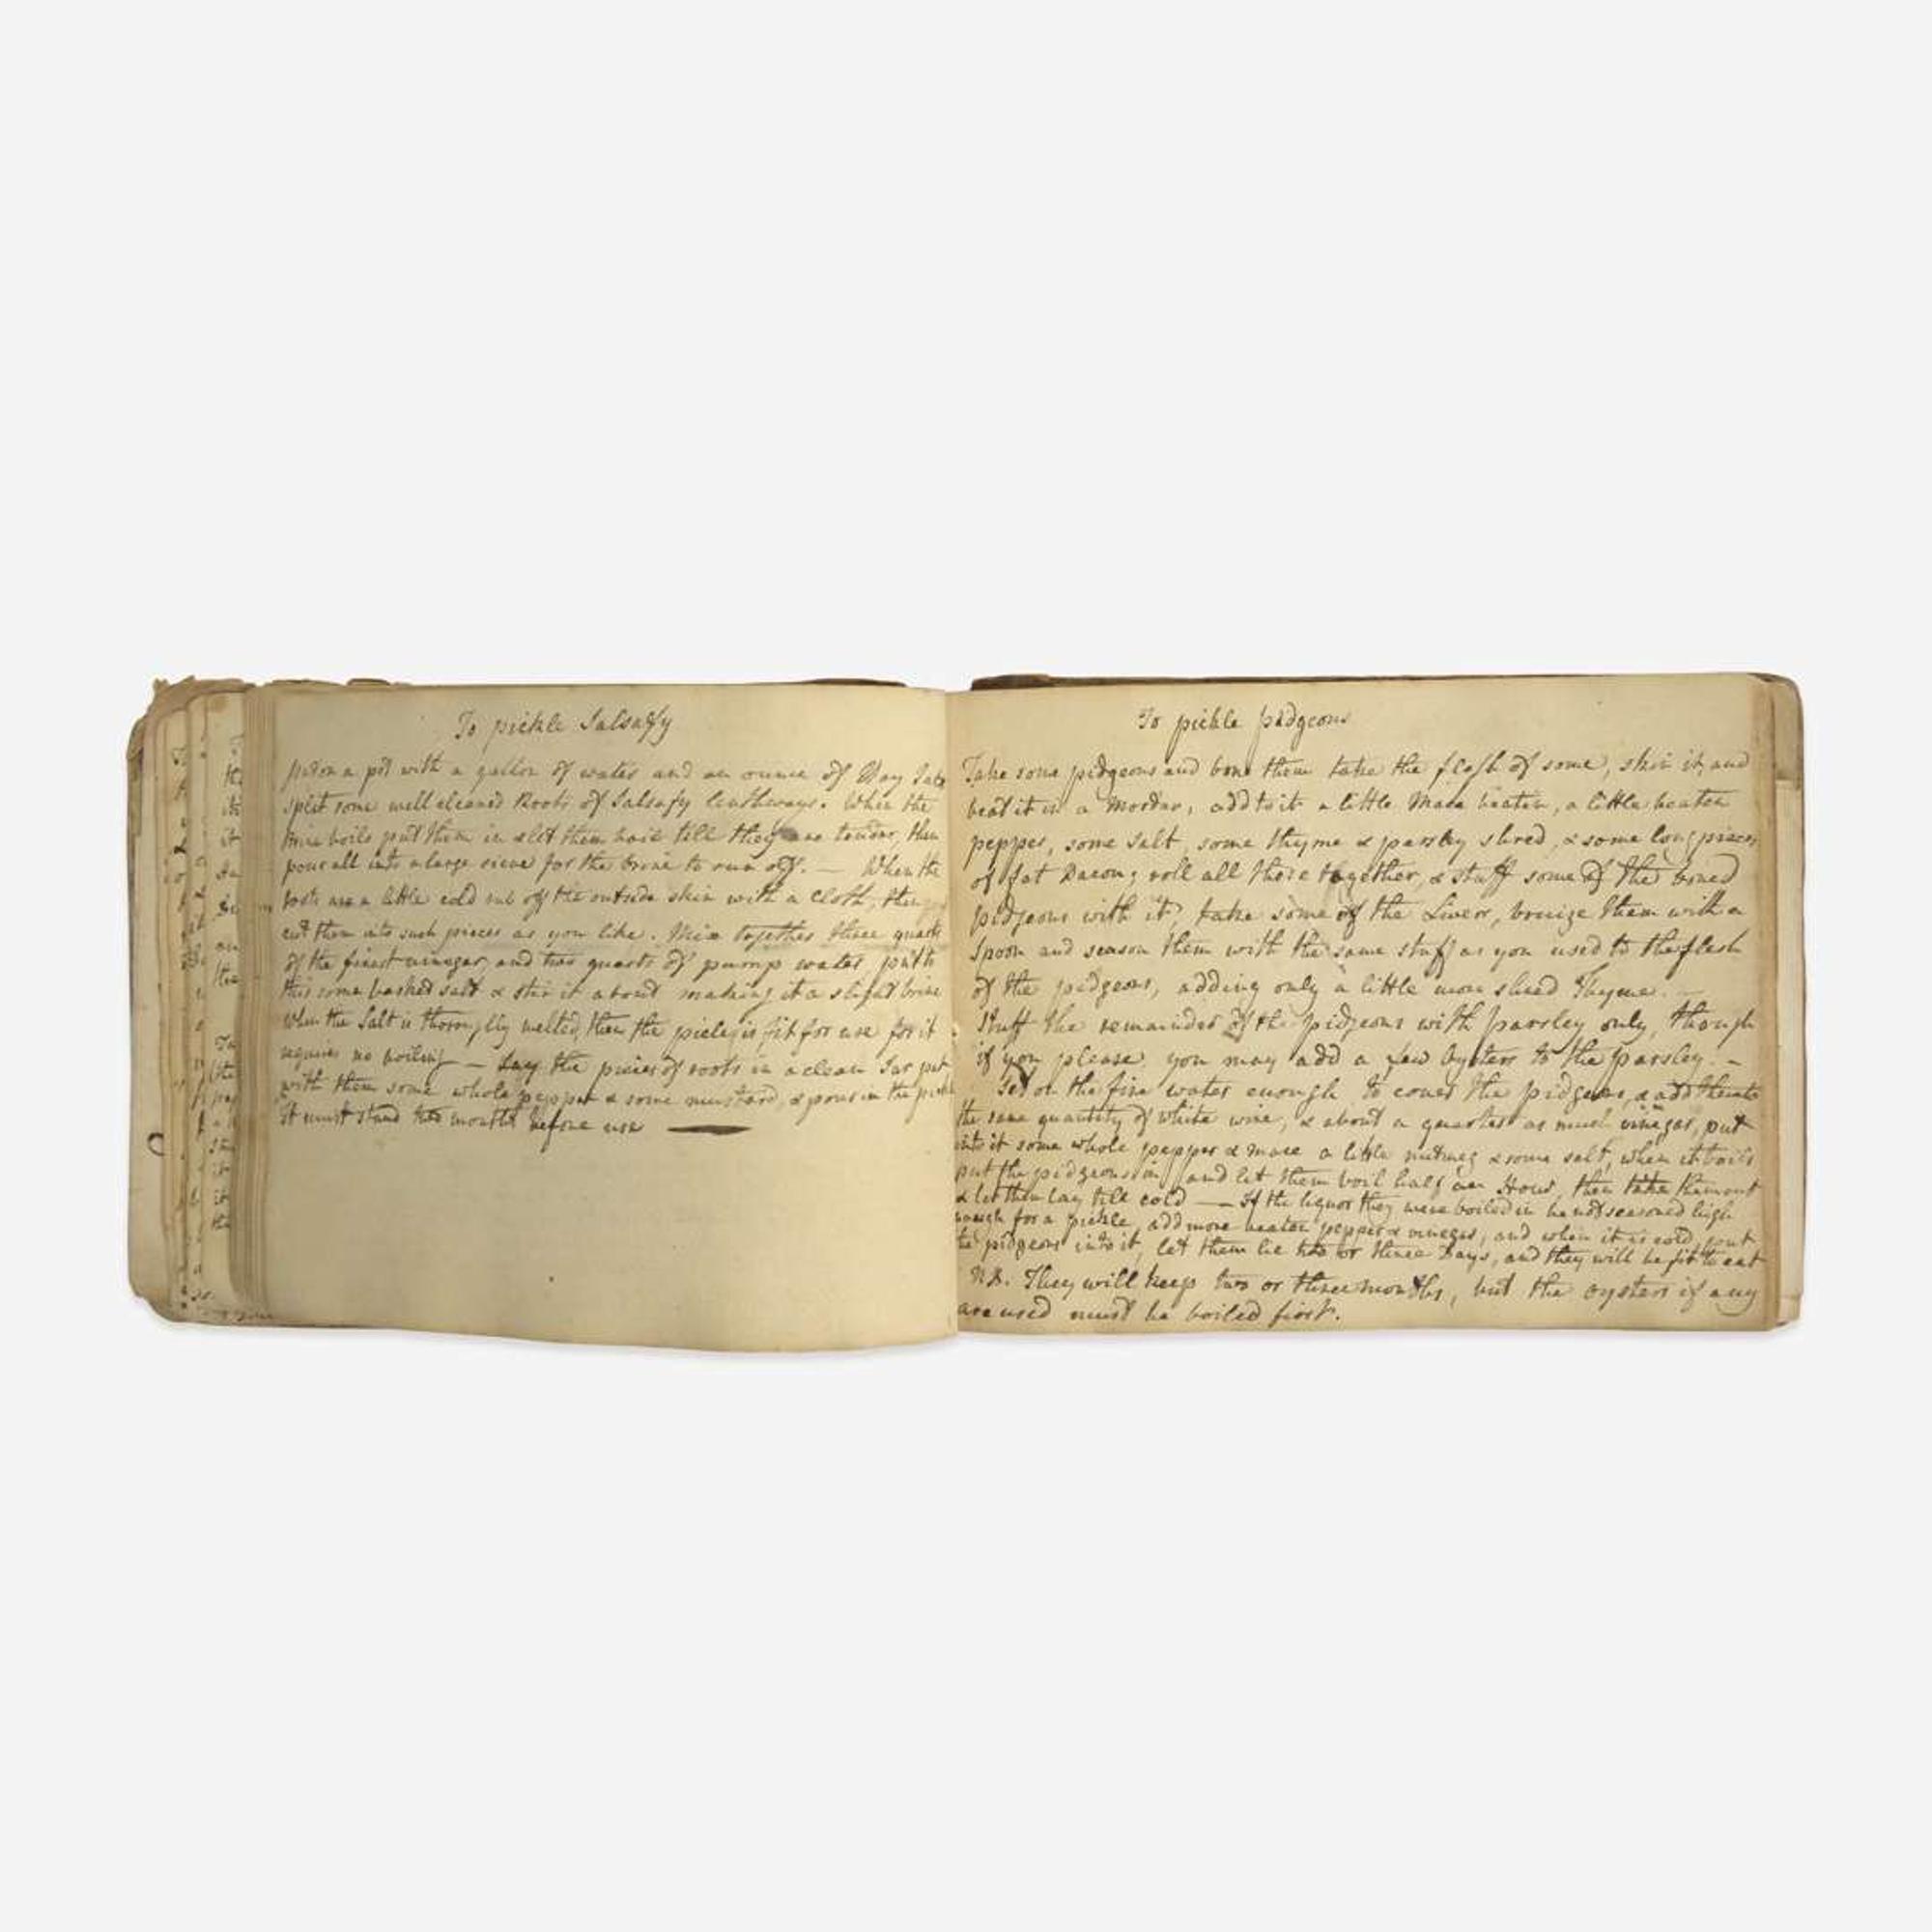 To pickle Salsafy
put on a pot with a gallon of water and an ounce of Bay Salt
split some well cleaned Roots of Salsafy lenthways. When the
brine boils put them in & let them boil till they are tender, then
pour all into a large sieve for the brine to run off. — When the
roots are a little cold rub off the outside skin with a cloth, then
cut them into such pieces as you like. Mix together three quarts
of the finest vinegar, and two quarts of pump water put to
this some basked salt & stir it about making it a slight brine
When the Salt is thoroughly melted, then the pickle is fit for use for it
requires no boiling — Lay the pieces of roots in a clean Jar put
with them some whole pepper & some mustard, & pour in the pickle
it must stand two months before use
To pickle pidgeons
Take some pidgeons and bone them take the flesh of some, skin it, and
beat it in a Mordar, add to it a little Mace beaten, a little beaten
pepper, some Salt, some thyme & parsley shred, & some long pieces
of fat Bacon; roll all these together, & stuff some of the boned
pidgeons with it, take some of the Liver, bruize them with a
Spoon and season them with the same stuff as you used to the flesh
of the pidgeons, adding only a little more shred Thyme. —
Stuff the remainder of the pidgeons with parsley only, though
if you please you may add a few Oysters to the parsley. —
Set on the fire water enough to cover the pidgeons, & add thereto
the same quantity of white wine, & about a quarter as much vinegar, put
into it some whole pepper & mace a little nutmeg & some salt, when it boils
put the pidgeons in, and let them boil half an Hour, then take them out
& let them lay till cold — If the liquor they were boiled in be not seasoned high
enough for a pickle, add more beaten pepper & vinegar, and when it is cold, put
the pidgeons into it, let them lie two or three Days, and they will be fit to eat
N.B. They will keep two or three months, but the oysters if any
are used must be boiled first.